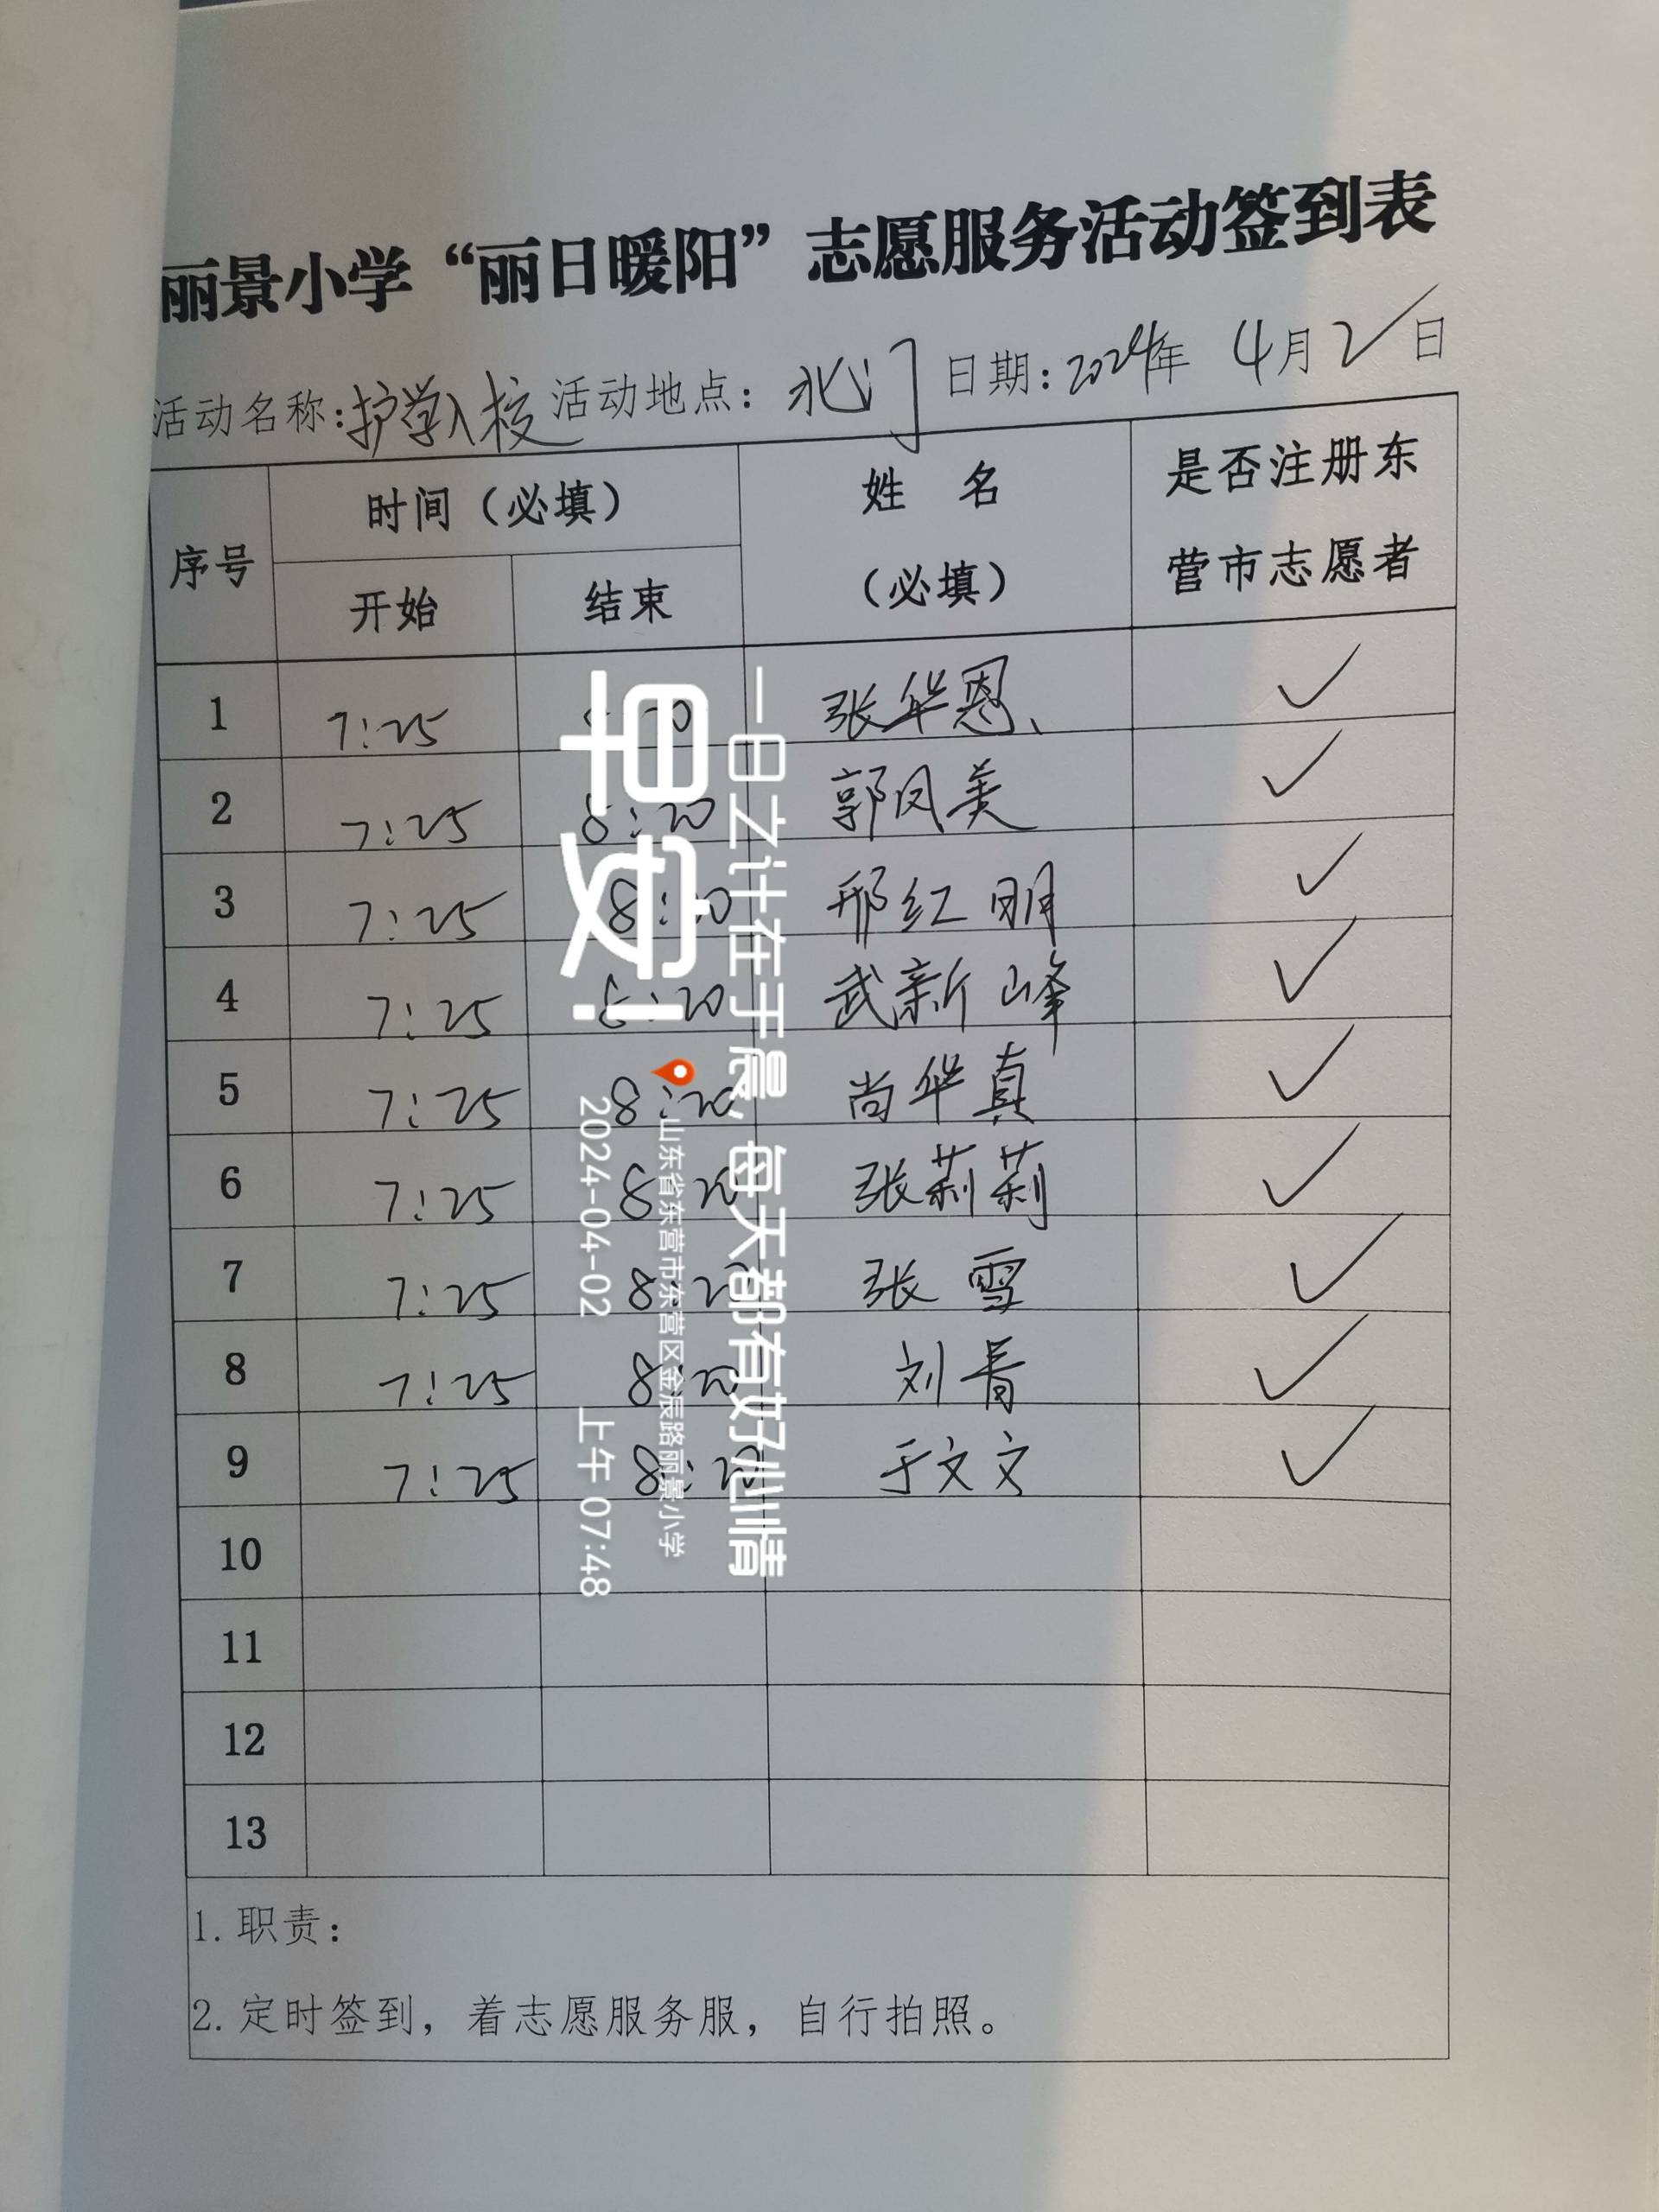 丽景小学“丽日暖阳”志愿服务活动签到表
活动名称:护学入校 活动地点：北门 日期:2024年 4月2日
序号 时间（必填） 姓 名（必填） 是否注册东营市志愿者
开始 结束
1 7:25 张华恩 ✓
2 7:25 8:20 郭凤美 ✓
3 7:25 8:20 邢红明 ✓
4 7:25 8:20 武新峰 ✓
5 7:25 8:20 尚华真 ✓
6 7:25 8:20 张莉莉 ✓
7 7:25 8:20 张雪 ✓
8 7:25 8:20 刘 ✓
9 7:25 8:20 于文文 ✓
10
11
12
13
1.职责：
2.定时签到，着志愿服务服，自行拍照。
一日之计在于晨，每天都有好心情
早安!
山东省东营市东营区金辰路丽景小学
2024-04-02 上午 07:48